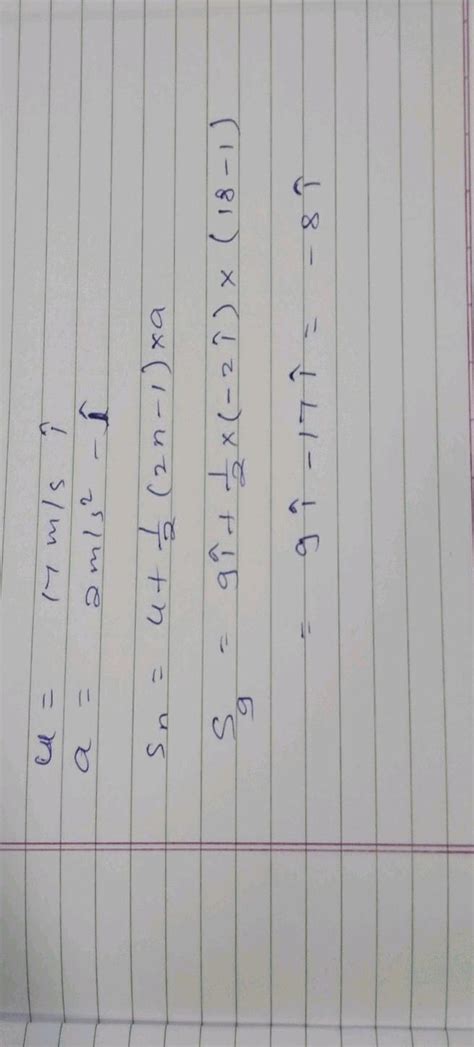 u = 17 m/s î
a = 2m/s² -î
Sn = u + 1/2 (2n-1) × a
S9 = 9î + 1/2 × (-2î) × (18-1)
= 9î - 17î = -8î